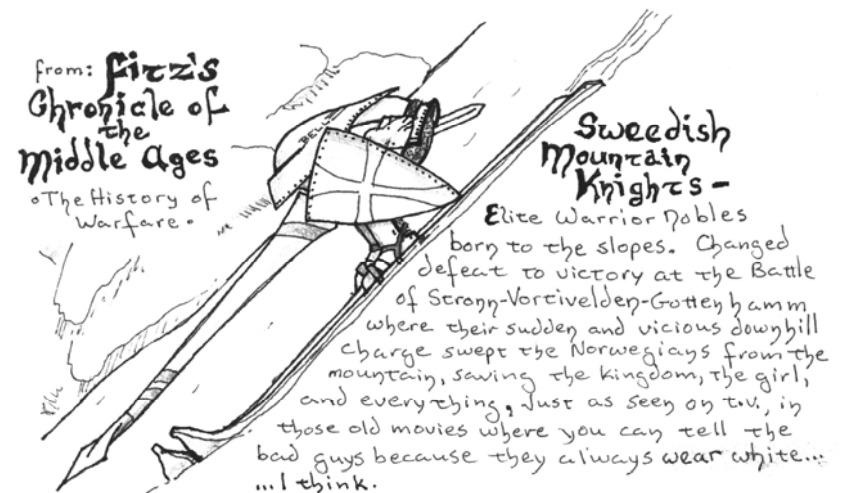 from: Fitz's
Chronicle of
the
Middle Ages
•The History of
Warfare•
BELL
Sweedish
Mountain
Knights-
Elite Warrior Nobles
born to the slopes. Changed
defeat to victory at the Battle
of Stronn-Vortivelden-Gottenhamm
where their sudden and vicious downhill
charge swept the Norwegians from the
mountain, saving the kingdom, the girl,
and everything, Just as seen on t.v., in
those old movies where you can tell the
bad guys because they always wear white...
...I think.